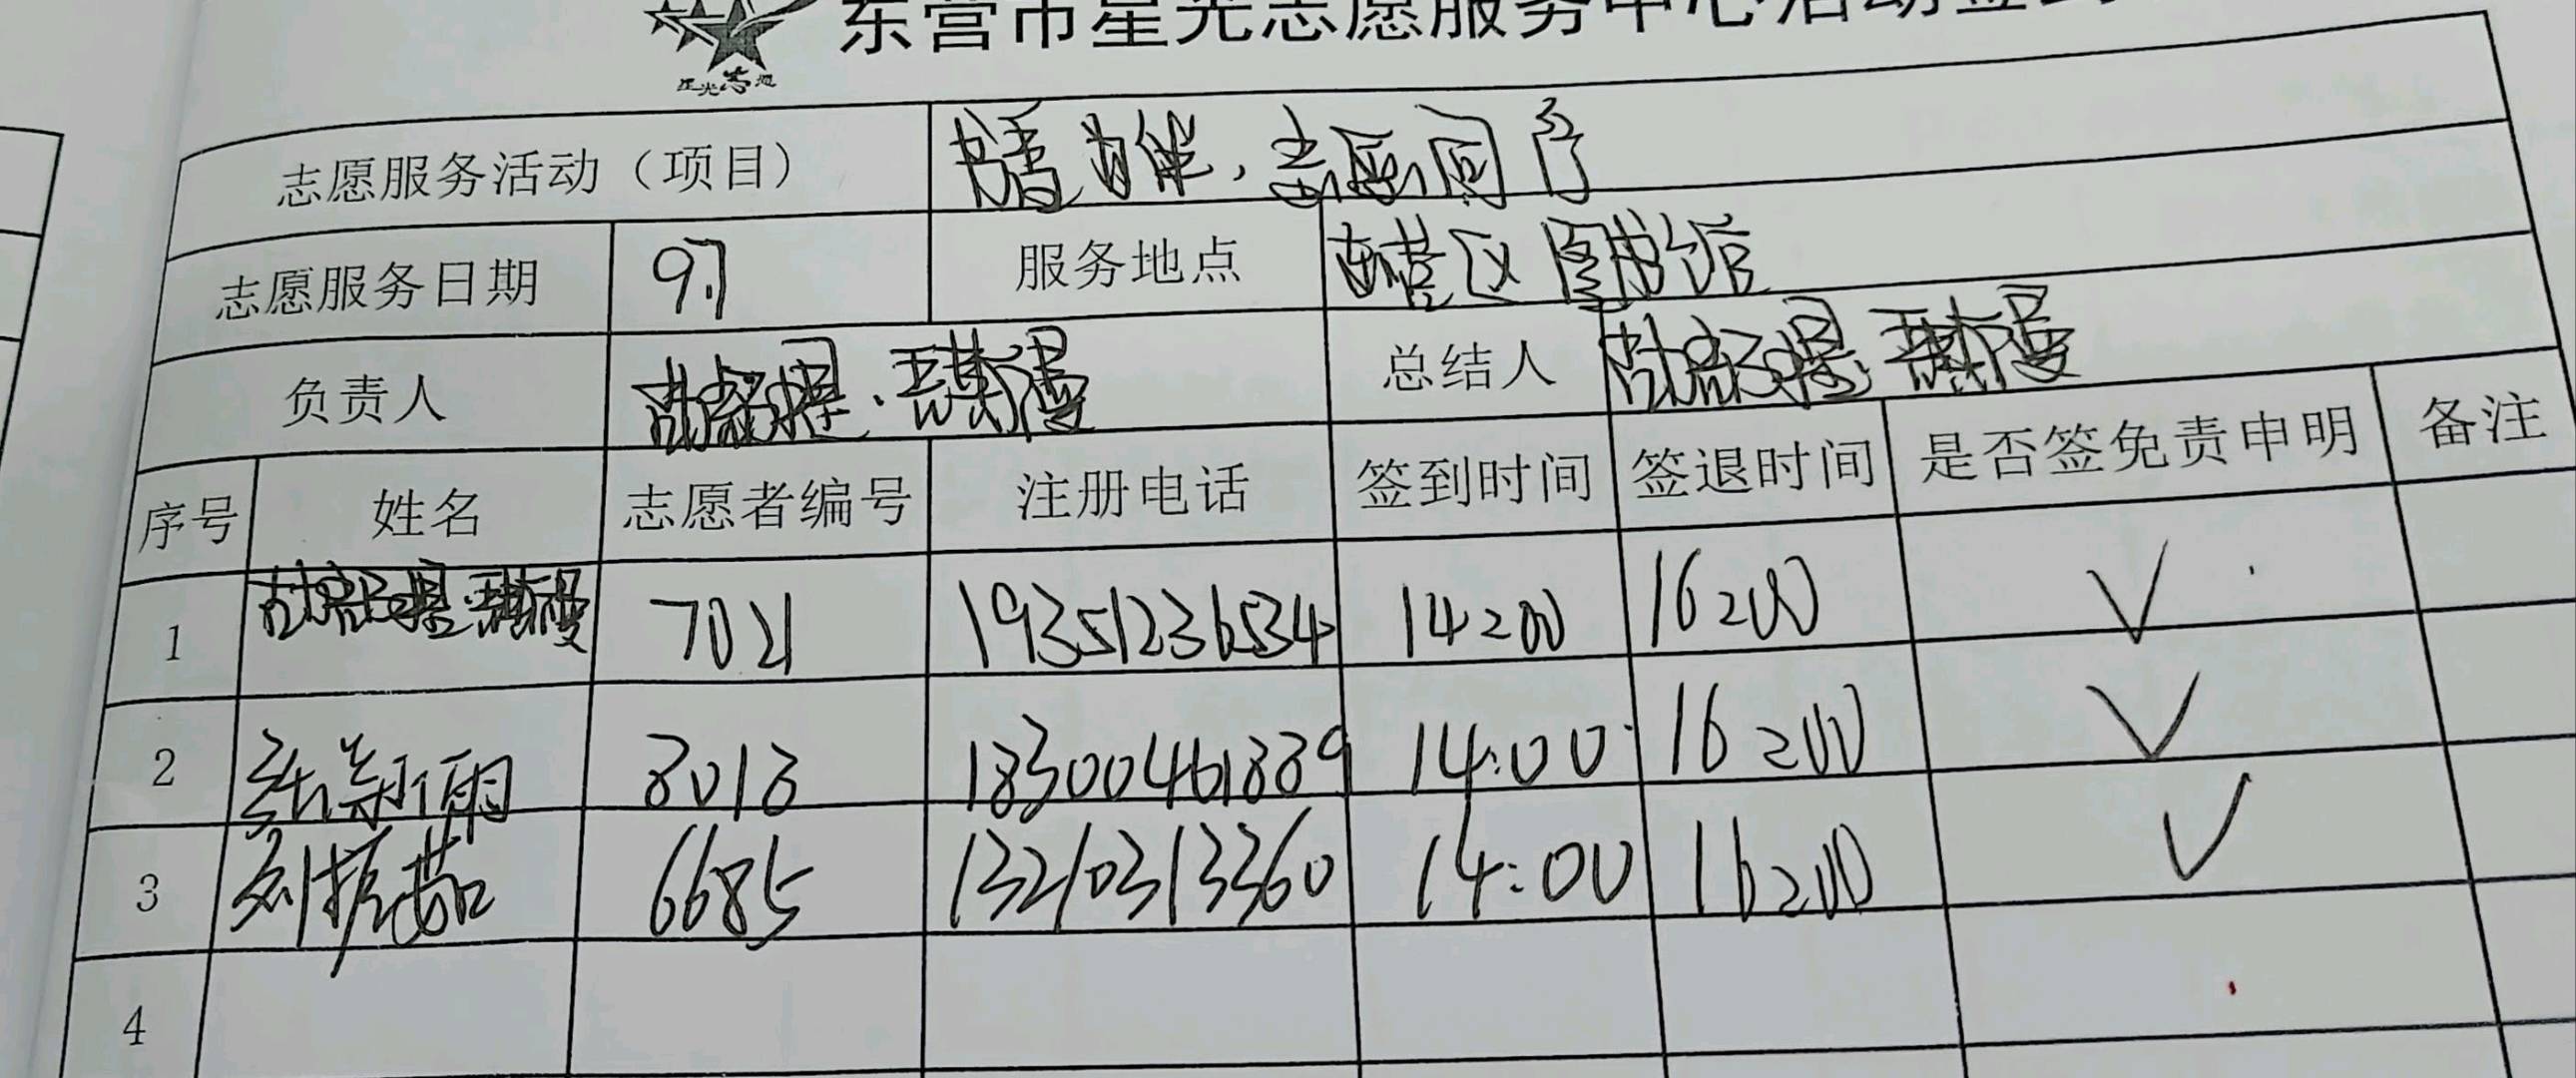 东营市星光志愿服务中心活动签到
星光志愿
志愿服务活动（项目） 书香为伴，志愿同行
志愿服务日期 9.7 服务地点 东营区图书馆
负责人 总结人
序号 姓名 志愿者编号 注册电话 签到时间 签退时间 是否签免责申明 备注
1 7021 19351236534 14:00 16:00 √
2 8018 18300461889 14:00 16:00 √
3 刘振茹 6685 13210313360 14:00 16:00 √
4